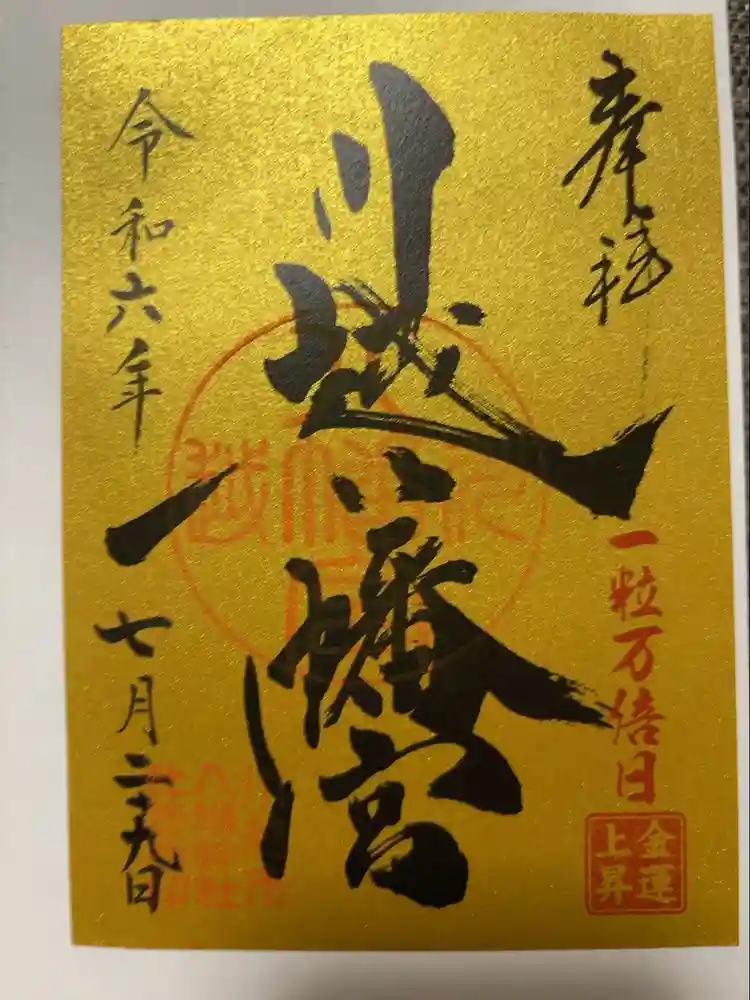 奉拝
一粒万倍日
金運
上昇
川越八幡宮
令和六年
七月二十九日